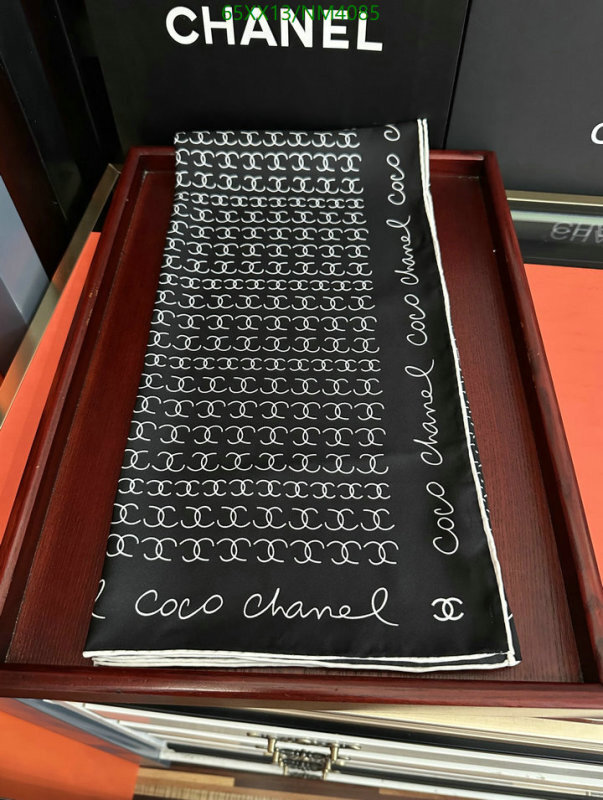 65XX13/NM4085
CHANEL
coco chanel coco chanel coco
coco chanel